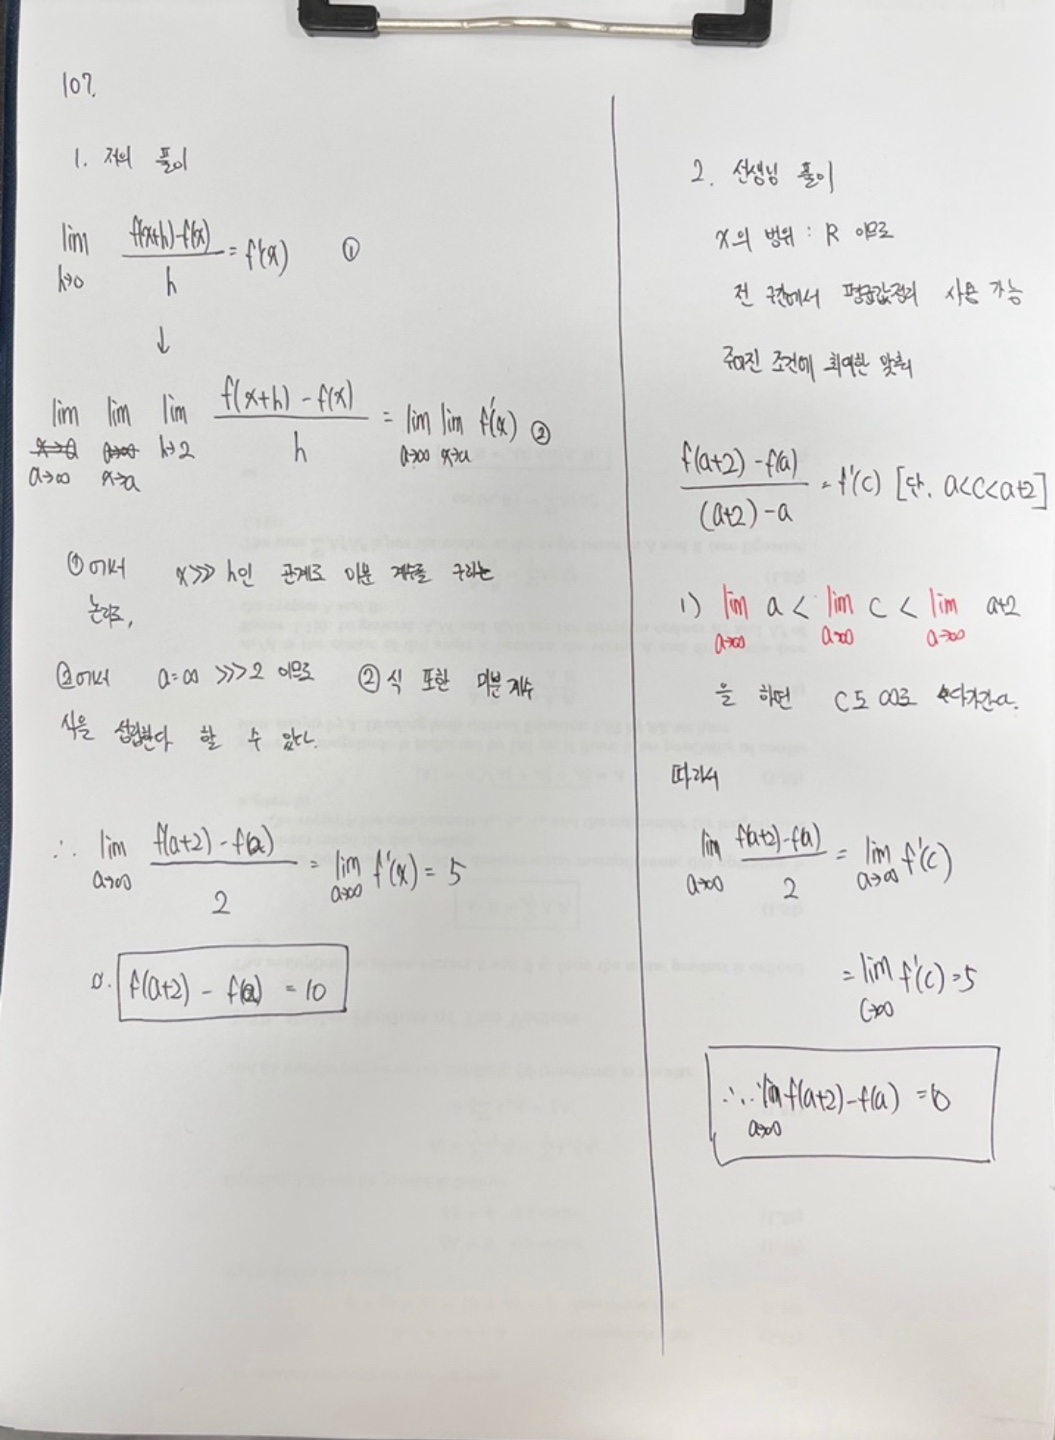 107.
1. 저의 풀이
lim h→0 f(x+h)-f(x) / h = f'(x) ①
↓
lim a→∞ lim x→a lim h→2 f(x+h) - f(x) / h = lim a→∞ lim x→a f'(x) ②
①에서 x≫h인 관계로 미분 계수를 구하는
논리로,
②에서 a=∞ >>>2 이므로 ②식 또한 미분계수
식을 성립한다 할 수 있다.
∴ lim a→∞ f(a+2) - f(a) / 2 = lim a→∞ f'(x) = 5
f(a+2) - f(a) = 10
2. 선생님 풀이
x의 범위 : R 이므로
전 구간에서 평균값정리 사용 가능
주어진 조건에 최대한 맞춰
f(a+2) - f(a) / (a+2) - a = f'(c) [단, a<c<a+2]
1) lim a→∞ a < lim a→∞ c < lim a→∞ a+2
을 하면 c도 ∞로 다가간다.
따라서
lim a→∞ f(a+2)-f(a) / 2 = lim a→∞ f'(c)
= lim c→∞ f'(c) = 5
∴ lim a→∞ f(a+2)-f(a) = 10